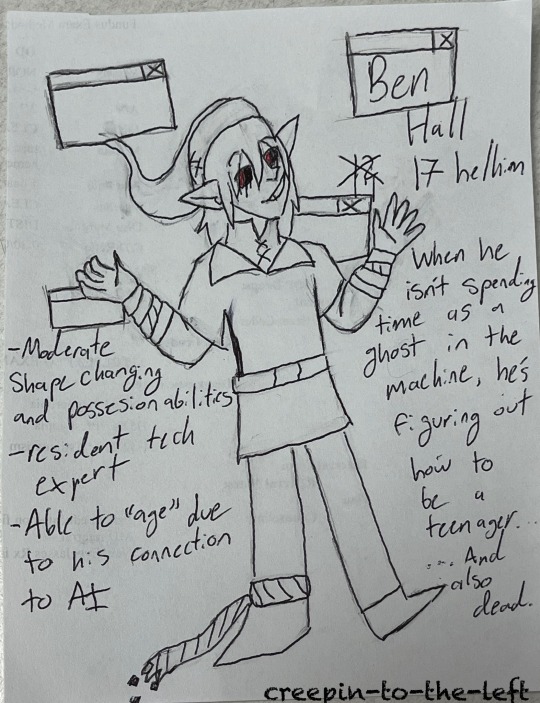 Ben
Hall
17 he/him
When he
isn't spending
time as a
ghost in the
machine, he's
figuring out
how to
be a
teenager...
... And
also
dead.
-Moderate
Shape changing
and possesion abilities
-resident tech
expert
-Able to "age" due
to his connection
to AI
creepin-to-the-left